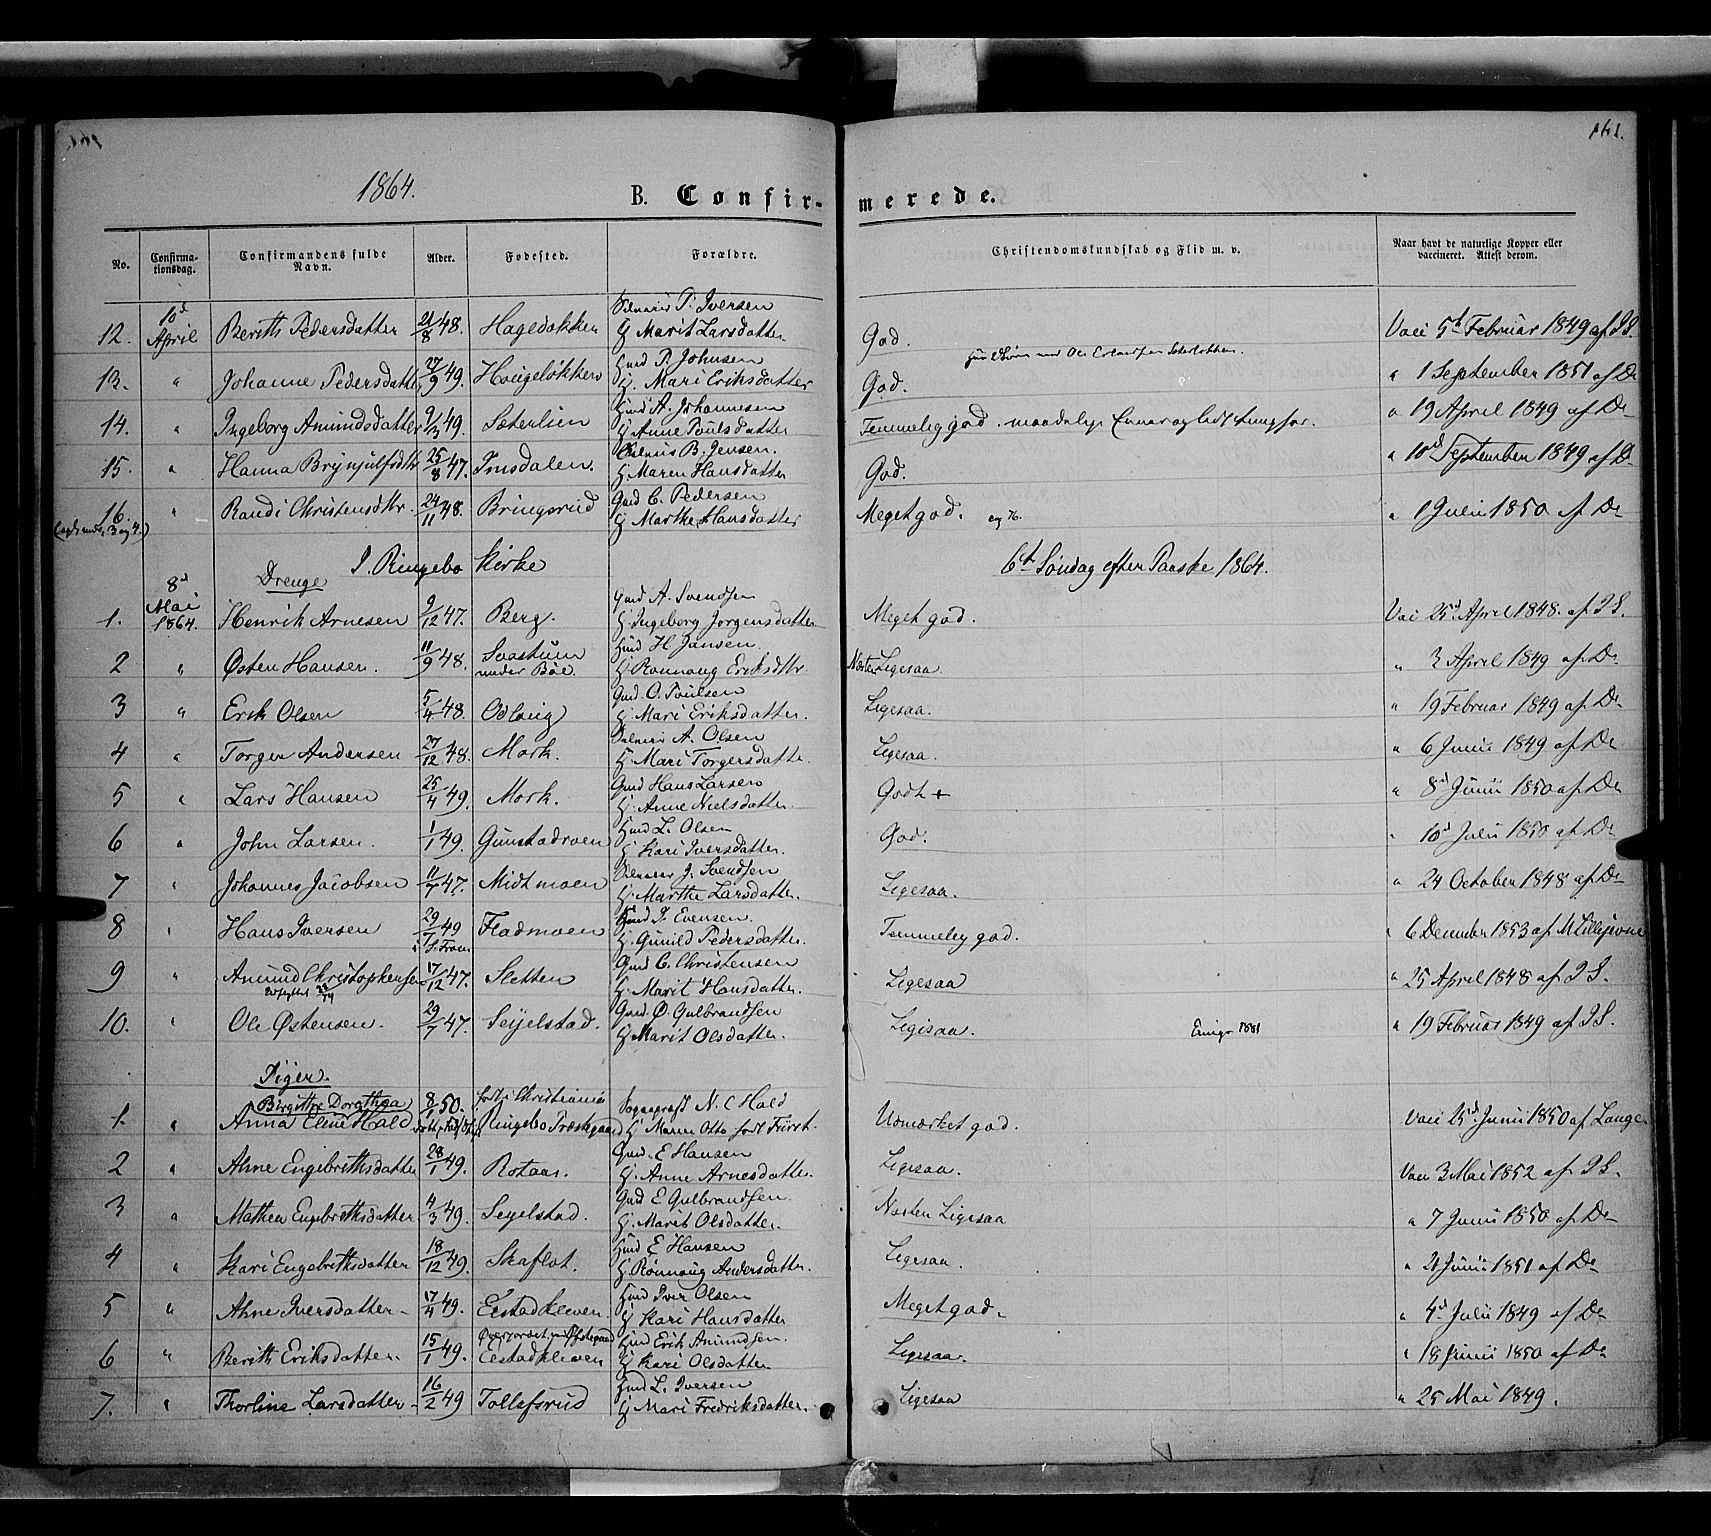 141.
1864.
B. Confirmerede.
No. Confirmationsdag. Confirmandens fulde Navn. Alder. Fødested. Forældre. Christendomskundskab og Flid m. v. Naar havt de naturlige Kopper eller vaccineret. Attest derom.
10d P. Iversen
12. April Berith Pedersdatter 21/8 48. Hageløkken H Marit Larsdatter God. Vaci 5t Februar 1849 af J S.
Huusmd P. Johnsen
13. " Johanne Pedersdatter 27/9 49. Haugeløkken H. Mari Eriksdatter God. " 1 September 1851 af Do
Huusmd A. Johannesen
14. " Ingeborg Amundsdatter 9/3 49. Sæterlien H Anne Poulsdatter Temmelig god. maadelig Evner og lidt tungfør. " 19 April 1849 af Do
B. Jensen.
15. " Hanna Brynjulfsdtr 25/8 47. Imsdalen. H. Maren Hansdatter God. " 10d September 1849 af Do
Gmd C. Pedersen
16. " Randi Christensdtr. 24/11 48. Bringsrud H Marthe Hansdatter Meget god. " 1 Juli 1850 af Do
I Ringebo Kirke 6te Søndag efter Paaske 1864.
Drenge
8d Mai 1864. Gmd A. Svendsen
1. Henrik Arnesen 9/12 47. Berg. H. Ingeborg Jørgensdatter Meget god. Vaci 25d April 1848. af J S.
Huusmd H Jansen
2 " Østen Hansen. 11/9 48. Svastum under Bøe. H. Rønnoug Eriksdtr. Næsten Ligesaa. " 3 April 1849 af Do
Gmd. O. Poulsen
3 " Erik Olsen 5/4 48. Odloug H. Mari Eriksdatter. Ligesaa. " 19 Februar 1849 af Do
A. Olsen
4 " Torger Andersen 27/12 48. Mork. H. Mari Torgersdatter. Ligesaa. " 6 Junii 1849 af Do
Gmd Hans Larsen
5 " Lars Hansen 25/4 49. Mork. H. Anne Nielsdatter. Godt + " 8d Junii 1850 af Do
Huusmd L. Olsen
6 " John Larsen. 1/1 49. Gunstadmoen H. Kari Iversdatter. God. " 10d Julii 1850 af Do
J. Svendsen
7 " Johannes Jacobsen 11/7 47. Midtmoen H. Marthe Larsdatter. Ligesaa. " 24 October 1848 af Do
Huusmd I. Evensen.
8 " Hans Iversen 29/7 49 i S. Fron. Fladmoen H. Gunild Pedersdatter. Temmelig god. " 6 December 1853 af M Lillejorne
Gmd C. Christensen
9 " Amund Christophersen 17/12 47. Sletten H. Marit Hansdatter. Ligesaa " 25 April 1848 af J S.
Gmd. Ø. Gulbrandsen
10. " Ole Østensen. 29/7 47. Seielstad. H. Marit Olsdatter. Ligesaa. Emigr 1881 " 19 Februar 1849 af J S.
Piger.
Birgitte Dorothea 8/1 50. født i Christiania Sogneprest N. C Hald
1. " Anna Eline Hald Ringebo Præstegaard H. Maren Otto født Fürst. Udmærket god. Vaci 25d Junii 1850 af Lange
Gmd. E Hansen
2 " Ahne Engebrethsdatter 28/1 49. Rotaas. H. Anne Arnesdatter. Ligesaa. Vaci 3 Mai 1852 af J S.
Gmd E Gulbrandsen
3 " Mathea Engebrethsdatter 4/3 49. Seielstad. H. Marit Olsdatter. Næsten Ligesaa " 7 Junii 1850 af Do
Huusmd E Hansen
4 " Kari Engebrethsdatter 18/12 49. Skaflot. H. Rønnoug Andersdatter. Ligesaa. " 21 Junii 1851 af Do
Huusmd Iver Olsen
5 " Ahne Iversdatter 17/4 49. Eistadkleven H Kari Hansdatter Meget god. " 4d Julii 1849 af Do
Huusmd Erik Amundsen.
6 " Berith Eriksdatter. 15/1 49. Eistadkleven H Kari Olsdatter Ligesaa. " 18 Junii 1850 af Do
Huusmd L. Iversen
7. " Thorline Larsdatter 16/2 49 Tollefsrud H Mari Fredriksdatter. Ligesaa " 25 Mai 1849.